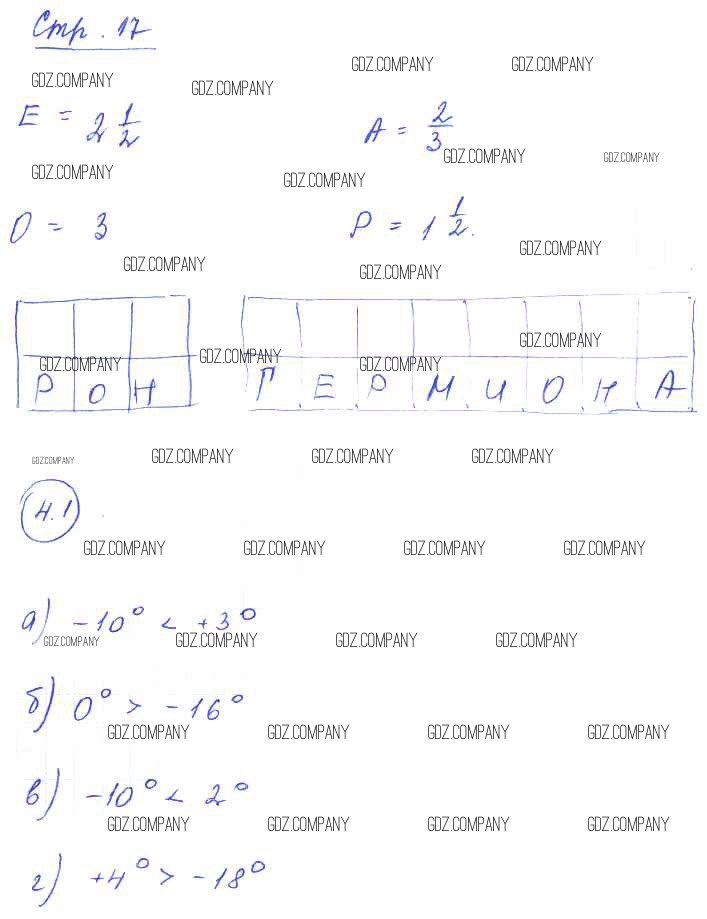 Стр. 17
GDZ.COMPANY GDZ.COMPANY
GDZ.COMPANY GDZ.COMPANY
E = 2 1/2 A = 2/3
GDZ.COMPANY GDZ.COMPANY
GDZ.COMPANY GDZ.COMPANY
O = 3 P = 1 1/2.
GDZ.COMPANY
GDZ.COMPANY GDZ.COMPANY
GDZ.COMPANY
GDZ.COMPANY GDZ.COMPANY GDZ.COMPANY
Р О Н Г Е Р М И О Н А
GDZ.COMPANY GDZ.COMPANY GDZ.COMPANY GDZ.COMPANY
4.1
GDZ.COMPANY GDZ.COMPANY GDZ.COMPANY GDZ.COMPANY
а) -10° < +3°
GDZ.COMPANY GDZ.COMPANY GDZ.COMPANY GDZ.COMPANY
б) 0° > -16°
GDZ.COMPANY GDZ.COMPANY GDZ.COMPANY GDZ.COMPANY
в) -10° < 2°
GDZ.COMPANY GDZ.COMPANY GDZ.COMPANY GDZ.COMPANY
г) +4° > -18°